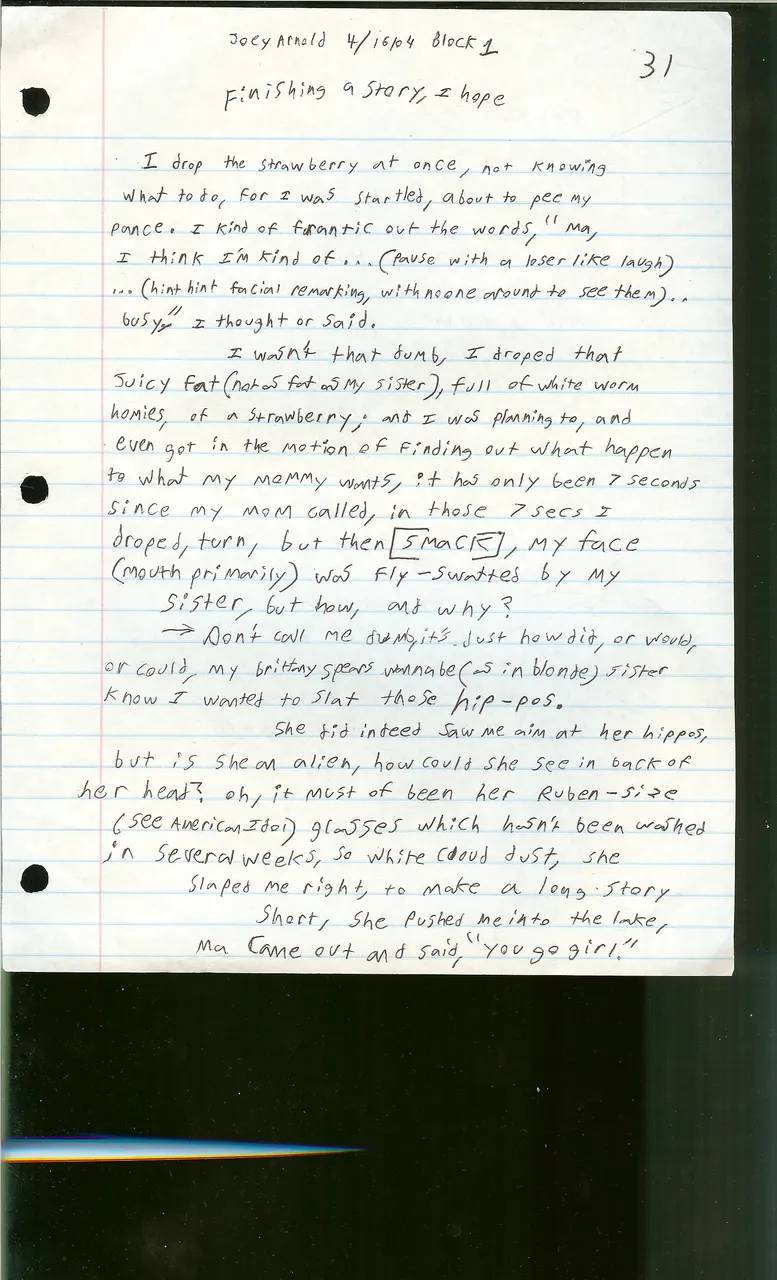 Joey Arnold 4/16/04 Block 1
31
Finishing a story, I hope
I drop the strawberry at once, not knowing
what to do, for I was startled, about to pee my
pance. I kind of frantic out the words, "Ma,
I think I'm kind of ... (pause with a loser like laugh)
... (hint hint facial remarking, with noone around to see them)..
busy," I thought or said.
I wasn't that dumb, I droped that
Juicy fat (not as fat as my sister), full of white worm
homies, of a strawberry; and I was planning to, and
even got in the motion of finding out what happen
to what my mommy wants, it has only been 7 seconds
since my mom called, in those 7 secs I
droped, turn, but then SMACK, my face
(mouth primarily) was fly-swatted by my
sister, but how, and why?
→ Don't call me dumb, it's just how did, or would,
or could, my brittany spears wannabe (as in blonde) sister
know I wanted to slat those hip-pos.
She did indeed saw me aim at her hippos,
but is she an alien, how could she see in back of
her head? oh, it must of been her Ruben-size
(see American Idol) glasses which hasn't been washed
in several weeks, so white cloud dust, she
slaped me right, to make a long story
short, she pushed me into the lake,
Ma came out and said, "you go girl."